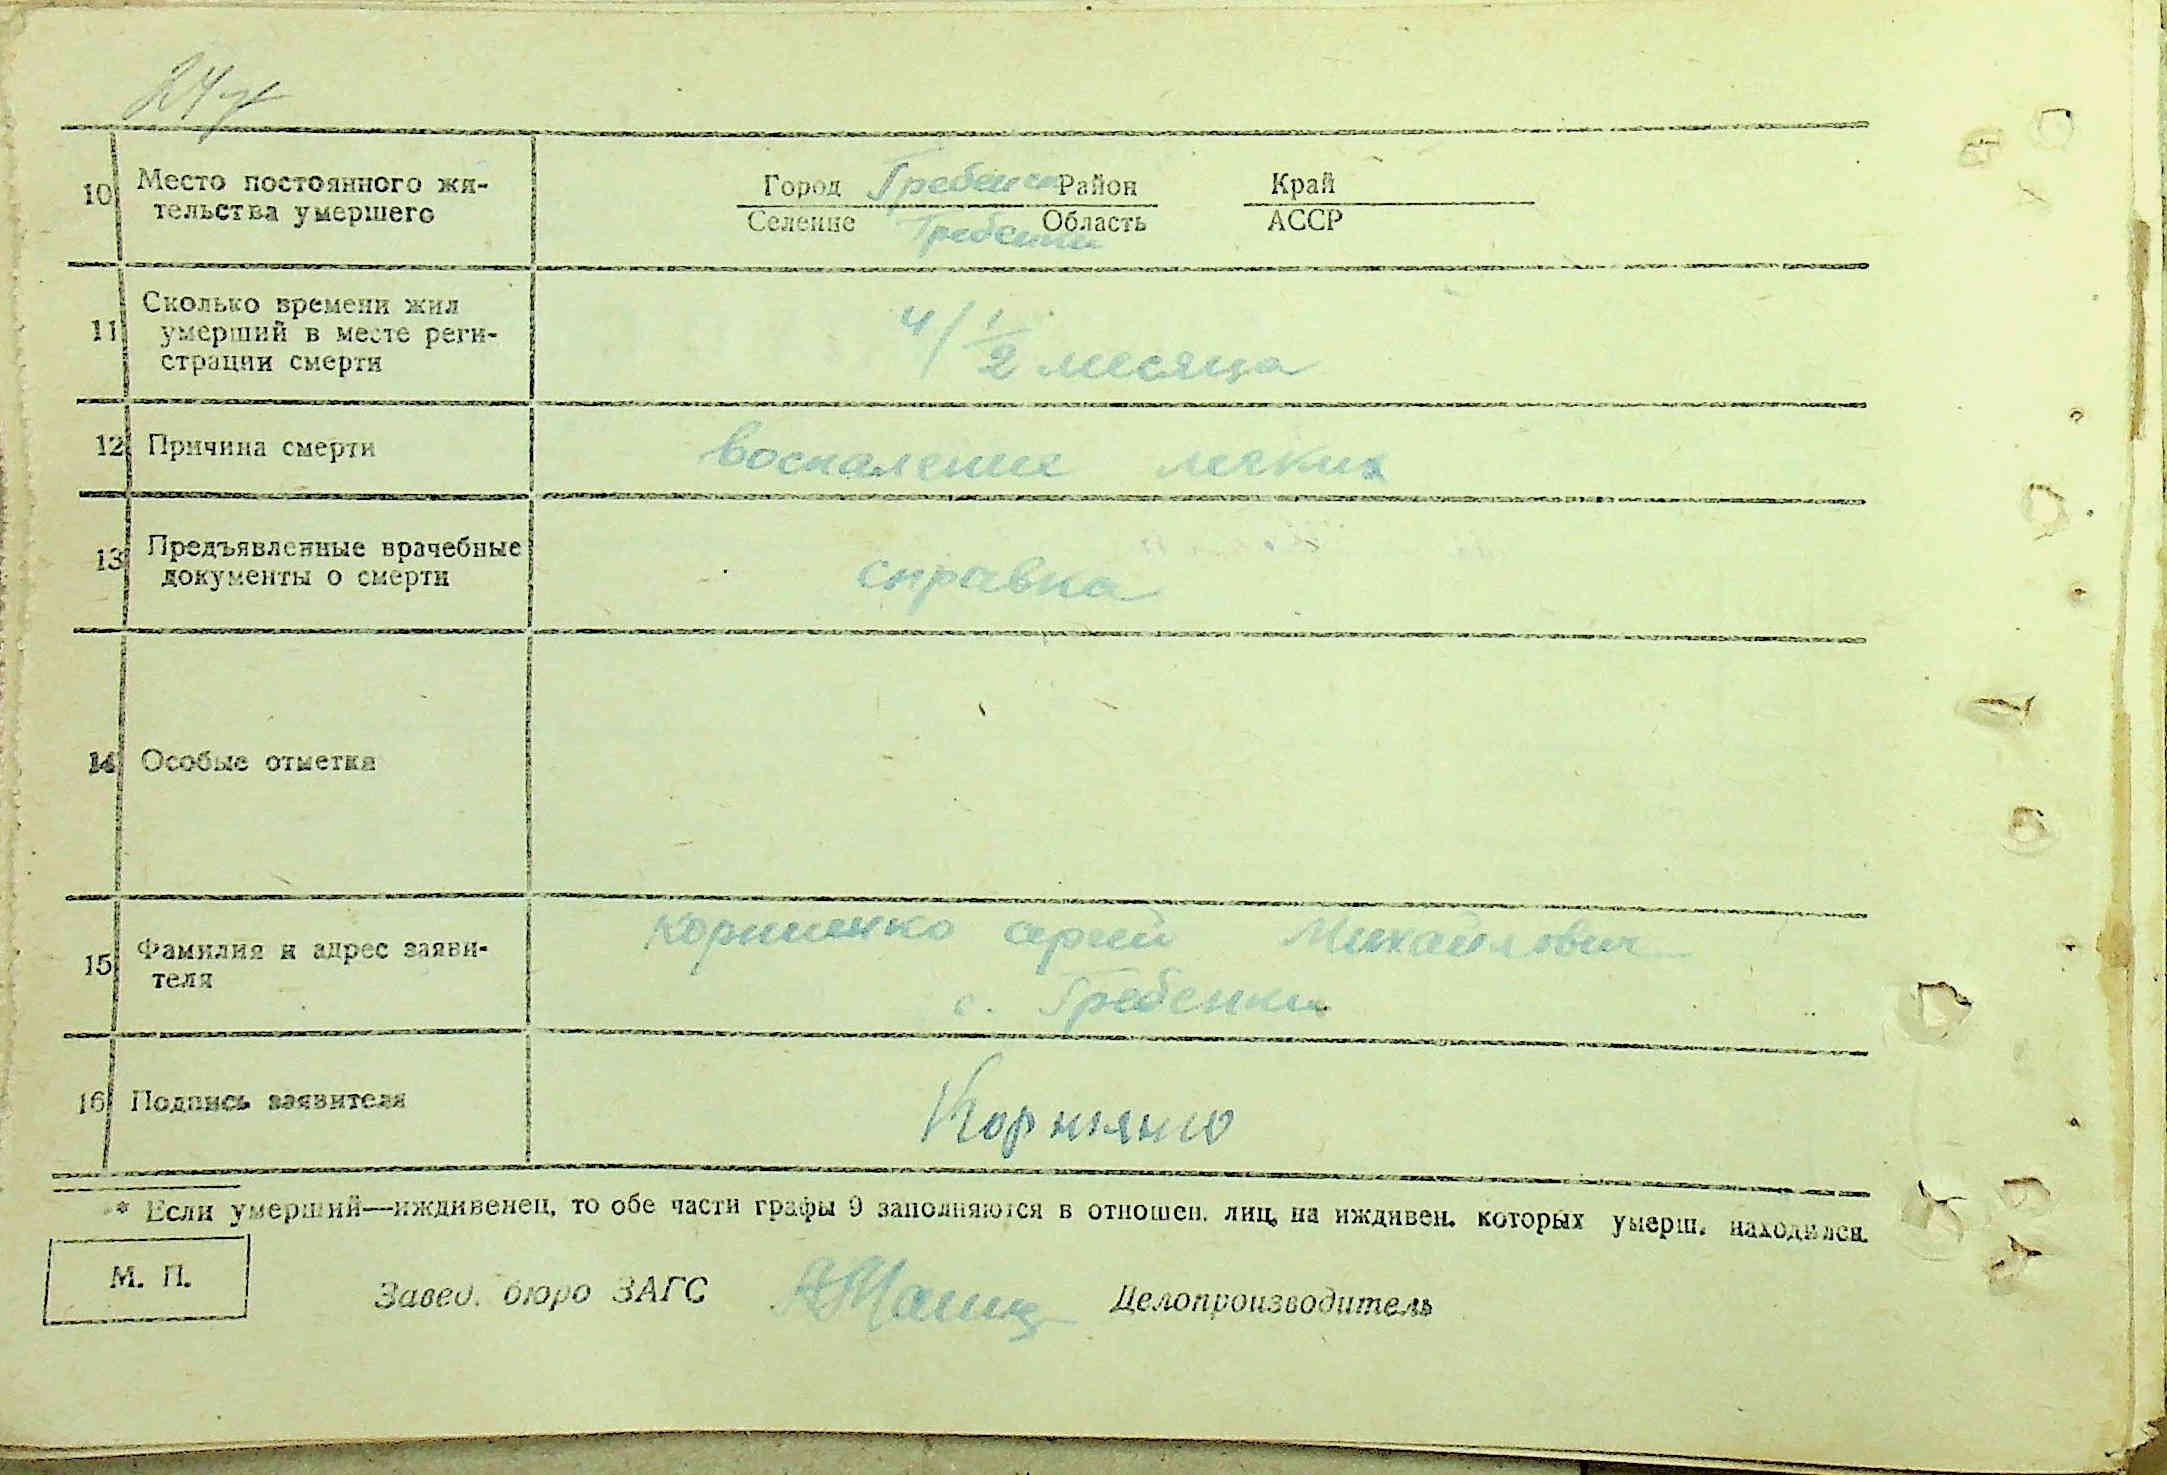 10 Место постоянного жи-
тельства умершего
Город Гребенск Район Край
Селение Гребенки Область АССР
11 Сколько времени жил
умерший в месте реги-
страции смерти
4/ 1/2 месяца
12 Причина смерти воспаление легких
13 Предъявленные врачебные
документы о смерти
справка
14 Особые отметки
15 Фамилия и адрес заяви-
теля
Корниенко сергий Михайлович
с. Гребенки
16 Подпись заявителя
* Если умерший—иждивенец, то обе части графы 9 заполняются в отношен. лиц, на иждивен. которых умерш. находился.
М. П.
Завед. бюро ЗАГС Делопроизводитель